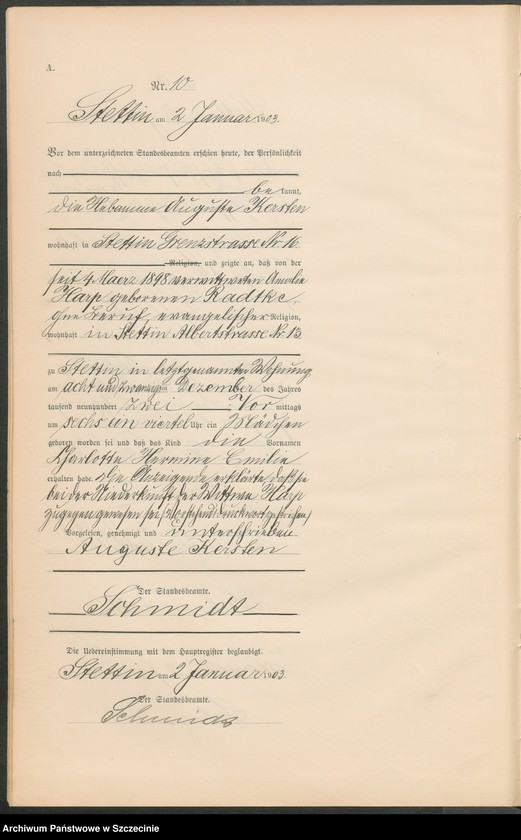 A.
Nr. 10
Stettin am 2 Januar 1903.
Vor dem unterzeichneten Standesbeamten erschien heute, der Persönlichkeit
nach
be kannt,
die Hebamme Auguste Kersten
wohnhaft in Stettin Grenzstrasse Nr 16
Religion, und zeigte an, daß von der
seit 4 Maerz 1898 verwittweten Amalie
Harp geborenen Radtke,
ohne Beruf, evangelischer Religion,
wohnhaft in Stettin Albertstrasse Nr 13
zu Stettin in letztgenannter Wohnung
am acht und zwanzigsten Dezember des Jahres
tausend neunhundert zwei Vor mittags
um sechs ein viertel Uhr ein Mädchen
geboren worden sei und daß das Kind die Vornamen
Charlotte Hermine Emilie
erhalten habe. Die Anzeigende erklärte daß sie
bei der Niederkunft der Wittwe Harp
zugegen gewesen sei. (Vorstehend Druckwort gestrichen)
Vorgelesen, genehmigt und unterschrieben.
Auguste Kersten
Der Standesbeamte.
Schmidt
Die Uebereinstimmung mit dem Hauptregister beglaubigt.
Stettin am 2 Januar 1903.
Der Standesbeamte.
Schmidt
Archiwum Państwowe w Szczecinie